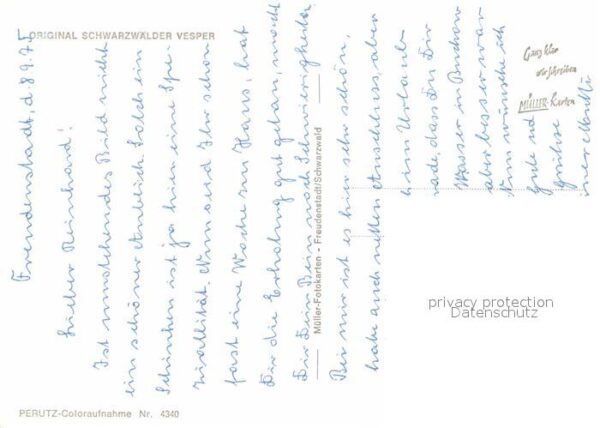 ORIGINAL SCHWARZWÄLDER VESPER
Freudenstadt, d. 8.9.75
Lieber Reinhard!
Ist umstehendes Bild nicht
ein schöner Anblick. Solch ein
Schinken ist ja hier eine Spe-
zialität. Nun seid Ihr schon
fast eine Woche zu Haus, hat
Dir die Erholung gut getan, macht
Dir Dein Bein noch Schwierigkeiten
Bei mir ist es hier sehr schön,
habe auch netten Anschluss, aber
im Urlaub
schade, dass Du Dir
Wasser in
aber besser war
Nun wünsche ich
Gute und
Grüße
Mutti
Müller-Fotokarten - Freudenstadt/Schwarzwald
Ganz klar
wir schreiben
MÜLLER-Karten
PERUTZ-Coloraufnahme Nr. 4340
privacy protection
Datenschutz